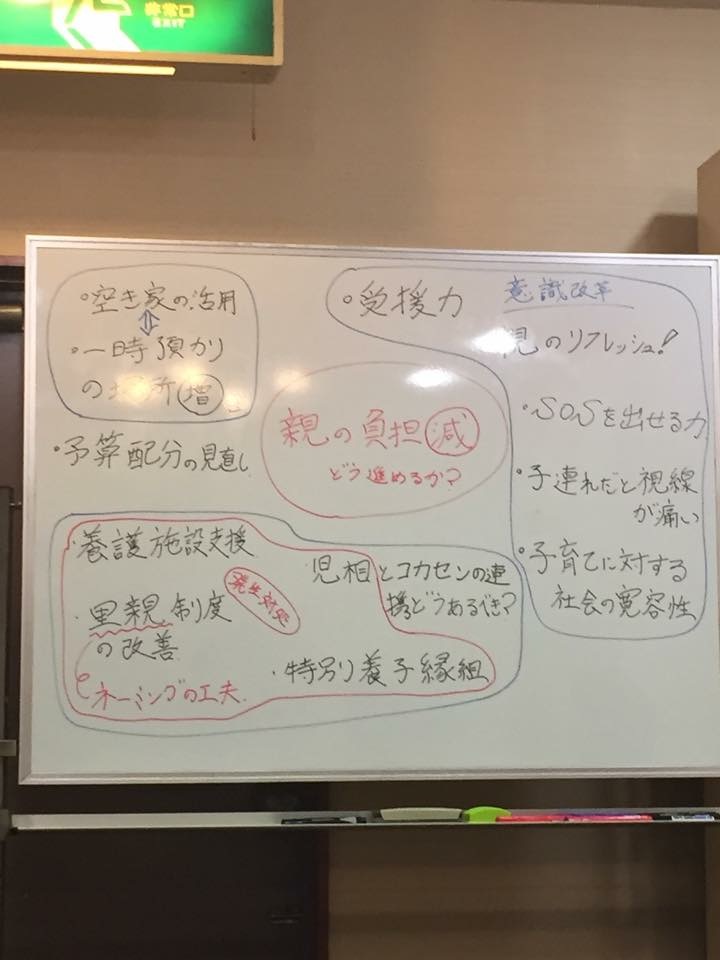 非常口
EXIT
・空き家の活用
⇕
・一時預かり
の場所増
・予算配分の見直し
親の負担減
どう進めるか?
・受援力
意識改革
親のリフレッシュ!
・SOSを出せる力
・子連れだと視線
が痛い
・子育てに対する
社会の寛容性
・養護施設支援
発生対処
・里親制度
の改善
ネーミングの工夫
児相とコカセンの連
携どうあるべき?
・特別養子縁組